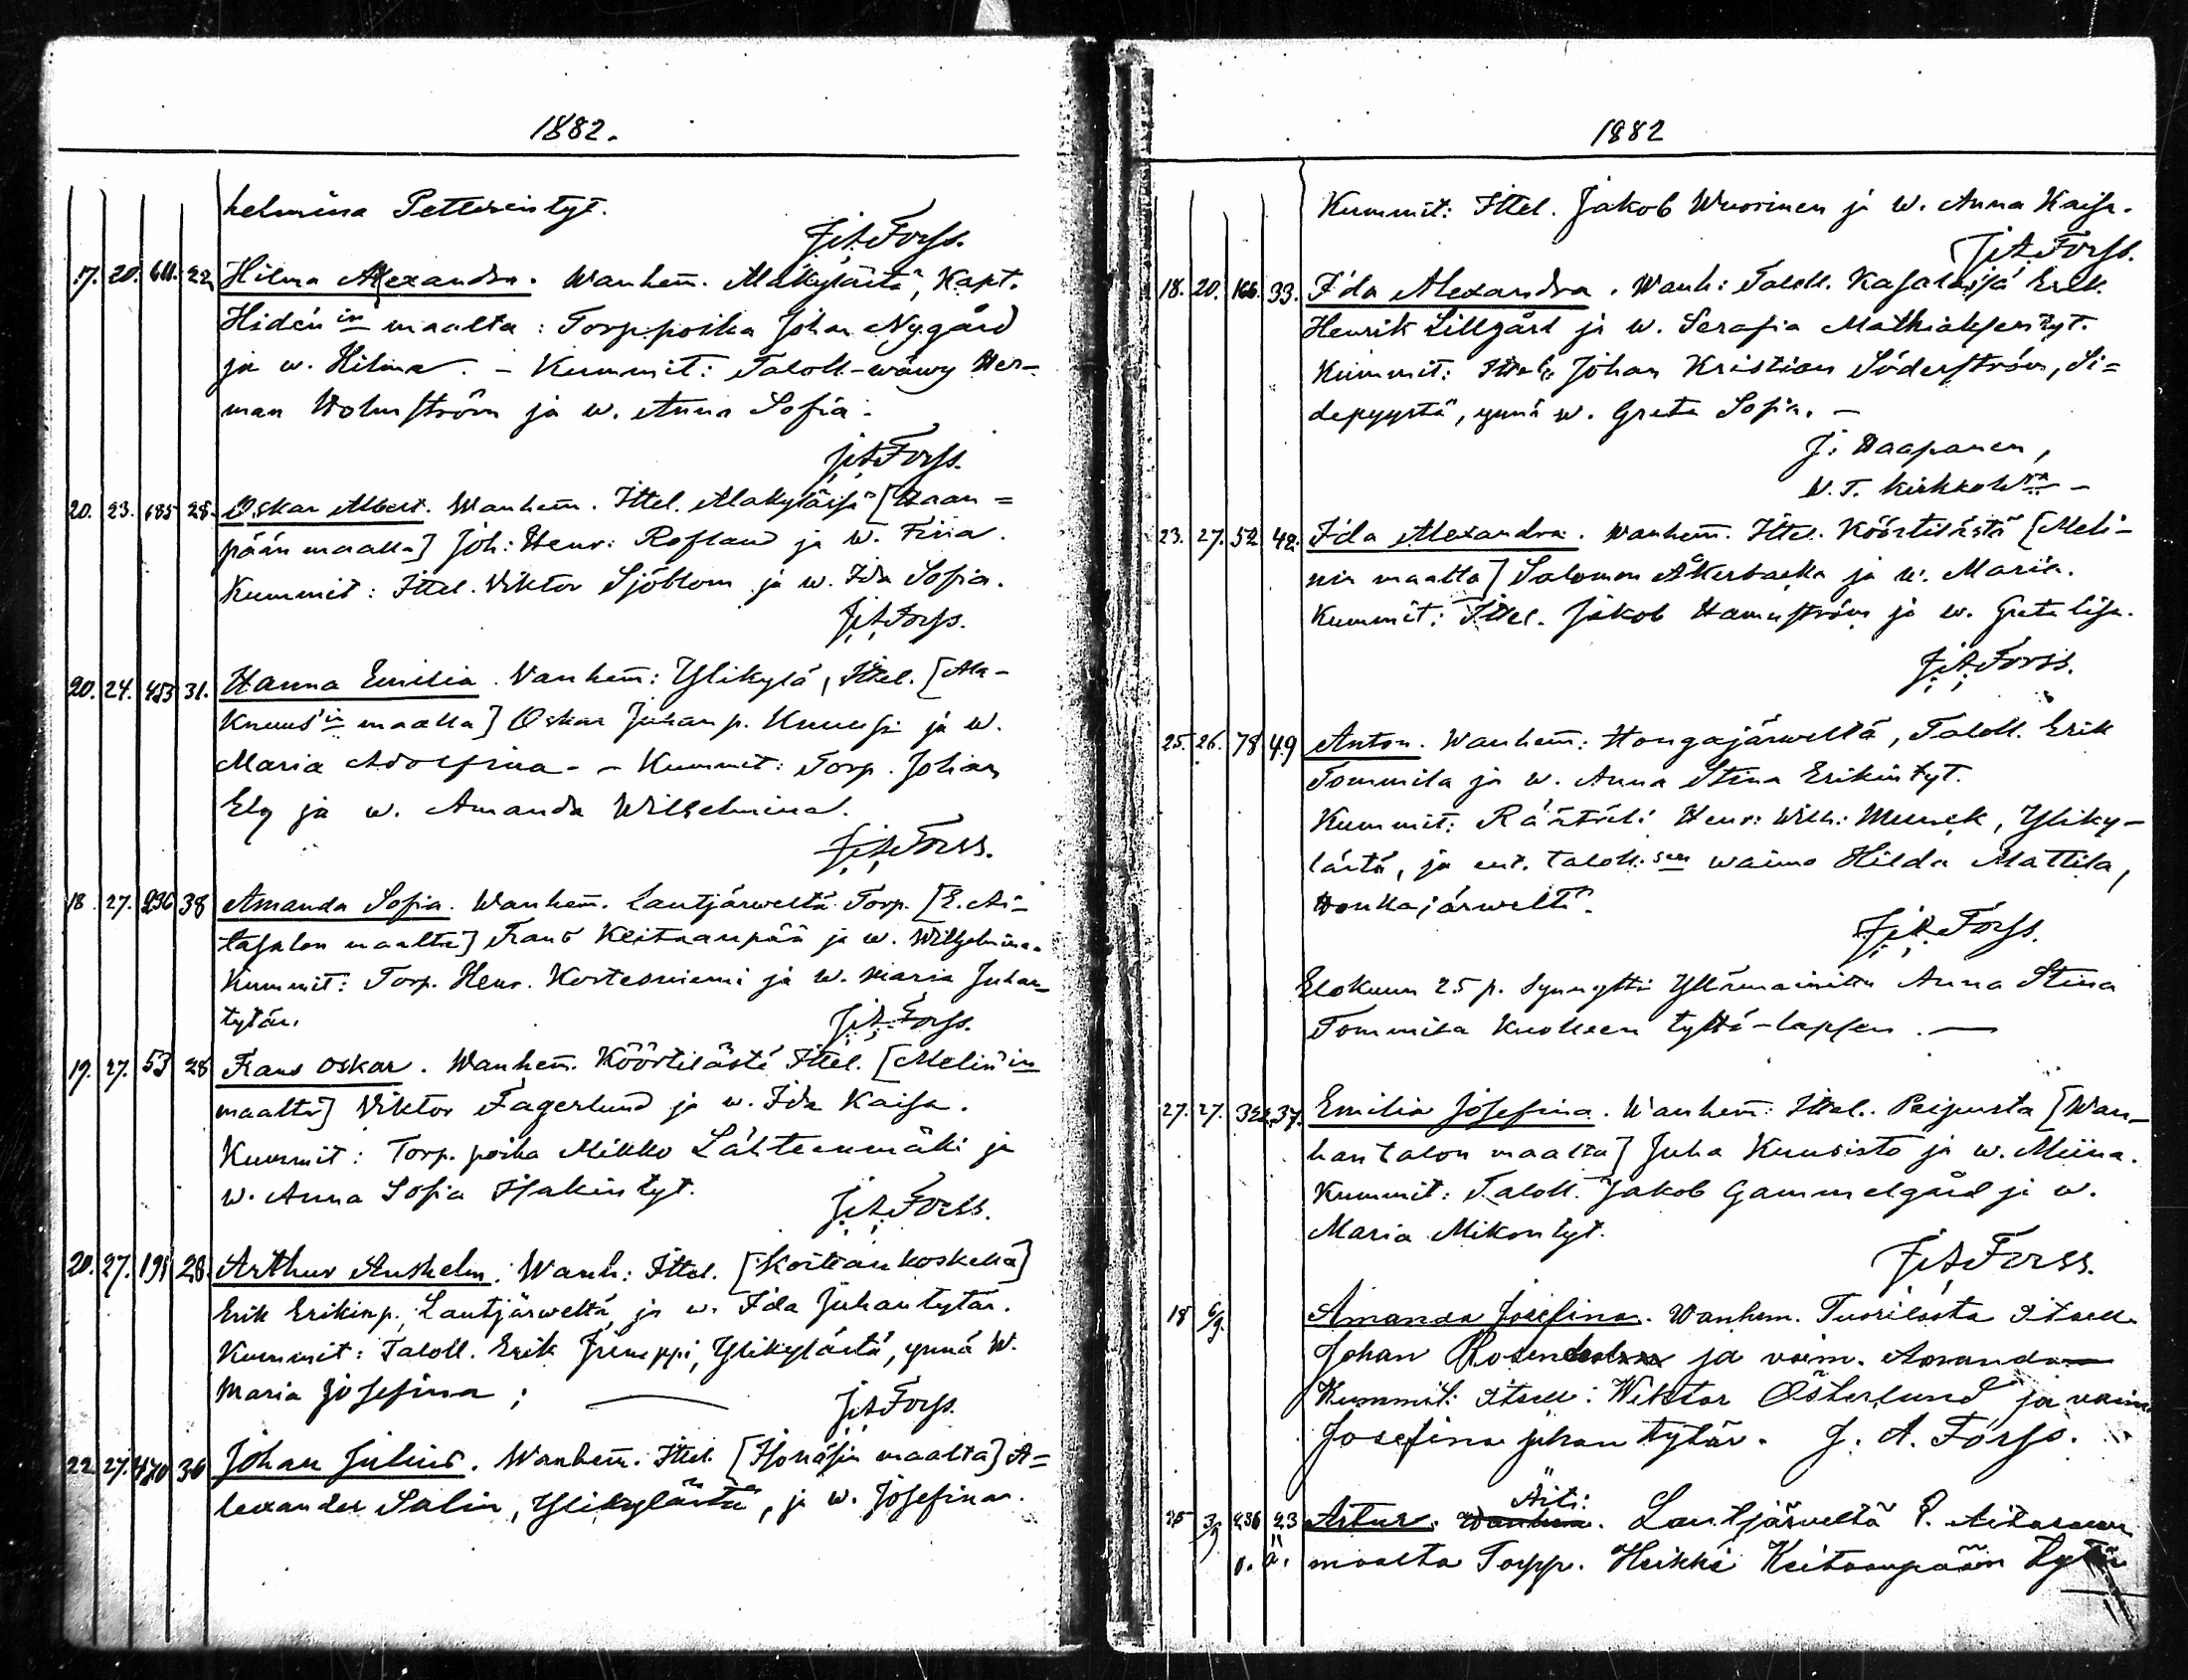 1882.
helmina Petterintyt.
J.A.Forss.
17. 20. 611. 22 Hilma Alexandra. Wanhem. Alakylästä, Kapt.
Hidén'in maalta: Torp.poika Johan Nygård
ja w. Hilma. – Kummit: Taloll-wäwy Her-
man Holmström ja w. Anna Sofia.
J.A.Forss.
20. 23. 685 28. Oskar Albert. Wanhem. Ittel. Alakyläisiä [Haan=
pään maalla] Joh: Henr: Rosland ja w. Fina.
Kummit: Ittel. Viktor Sjöblom ja w. Ida Sofia.
J.A.Forss.
20. 24. 453 31. Hanna Emilia. Vanhem: Ylikylä, Ittel. [Ala-
Knuus'in maalla] Oskar Juhanp. Knuusi ja w.
Maria Adolfina - - Kummit: Torp. Johan
Elg ja w. Amanda Wilhelmina.
J.A.Forss.
18. 27. 236 38 Amanda Sofia. Wanhem. Lautjärweltä Torp. [E. Ai-
tasalon maalta] Frans Keitaanpää ja w. Wilhelmina.
Kummit: Torp. Henr. Kortesniemi ja w. Maria Juhan-
tytär.
J.A.Forss.
19. 27. 53 28 Frans Oskar. Wanhem. Köörtilästä Ittel. [Melin'in
maalta] Viktor Fagerlund ja w. Ida Kaisa.
Kummit: Torp. poika Mikko Lähteenmäki ja
w. Anna Sofia Isakintyt.
J.A.Forss.
20. 27. 191 28. Arthur Anshelm. Wanh: Ittel. [Koitankoskella]
Erik Erikinp. Lautjärweltä ja w. Ida Juhantytär.
Kummit: Taloll. Erik Ylikylästä, ynnä W.
Maria Josefina;
J.A.Forss.
22. 27. 470 36 Johan Julius. Wanhem. Ittel. maalta] A=
lexander Salin, Ylikylästä, ja w. Josefina.
1882
Kummit: Ittel. Jakob Wuorinen ja w. Anna Kaisa.
J.A.Forss.
18. 20. 166. 33. Ida Alexandra. Wanh: Taloll. Kasalaisiä Erik
Henrik Lillgård ja w. Serafia Mathiaksentyt.
Kummit: Ittel. Johan Kristian Söderström, Si=
depyystä, ynnä w. Greta Sofia. –
J. Haapanen,
W.T. Kirkkoh:ra –
23. 27. 52 42. Ida Alexandra. Wanhem. Ittel. Köörtilästä [Meli-
nin maalta] Salomon Åkerbacka ja w. Maria.
Kummit: Ittel. Jakob Hamnström ja w. Greta Lisa.
J.A.Forss.
25. 26. 78 49 Anton. Wanhem: Hongajärweltä, Taloll. Erik
Tommila ja w. Anna Stina Erikintyt.
Kummit: Räätäli Henr: Wilh: Munck, Yliky-
lästä, ja ent. taloll:sen waimo Hilda Mattila,
Honkajärweltä.
J.A.Forss.
Elokuun 25 p. synnytti Yllämainittu Anna Stina
Tommila kuolleen tyttö-lapsen. —
27. 27. 37. Emilia Josefina. Wanhem: Ittel. Peipusta [Wan-
hantalon maalta] Juha Kuusisto ja w. Miina.
Kummit: Taloll. Jakob Gammelgård ja w.
Maria Mikontyt.
J.A.Forss.
18 6/9. Amanda Josefina. Wanhem. Tuorilasta Itsell.
Johan ja vaim. Amanda
Kummit: Itsell: Wiktor Österlund ja vaim
Josefina juhan tytär. J. A. Forss.
Äiti:
25 3/9 236 23 Artur. Wanhem. Lautjärveltä E. Aitasalon
o. ä. maalta Torpp. Heikki Keitaanpään tytär